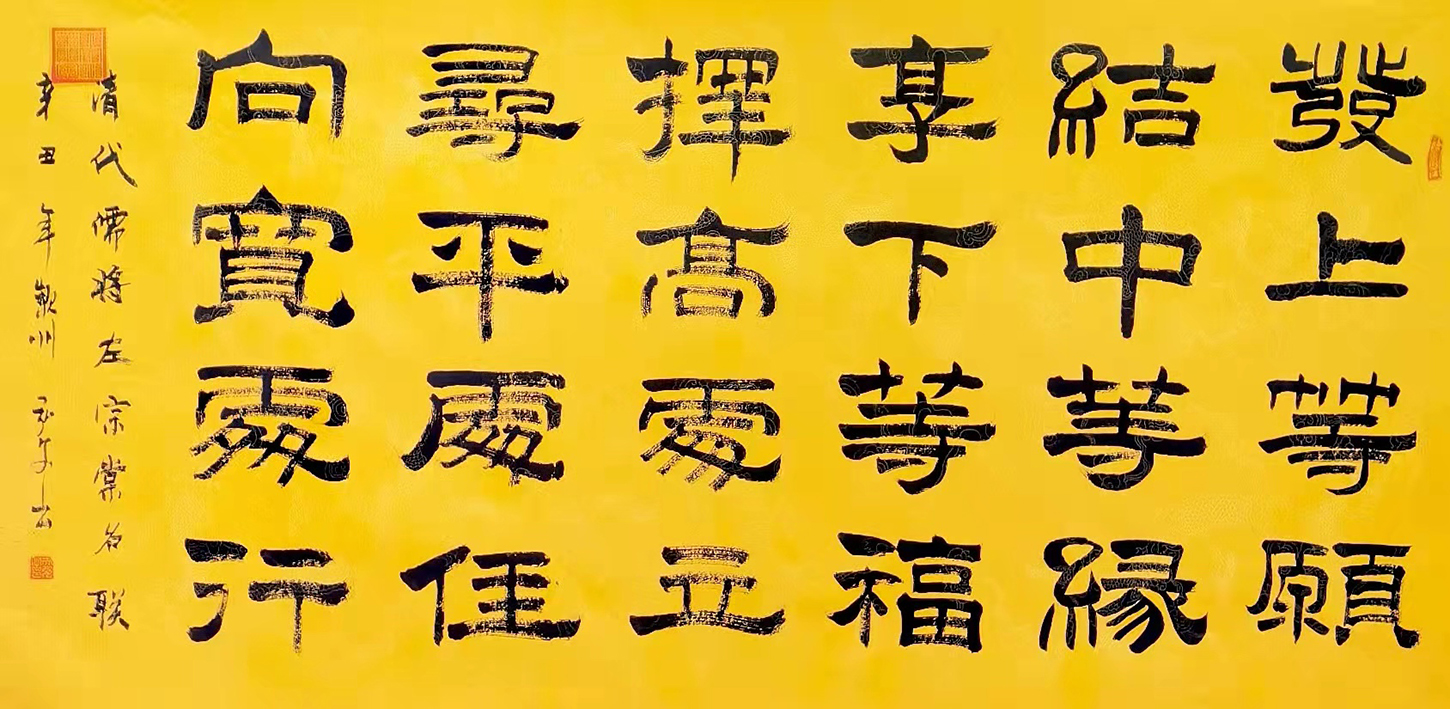 發上等願
結中等緣
享下等福
擇高處立
尋平處住
向寬處行
清代儒將左宗棠名联
辛丑年